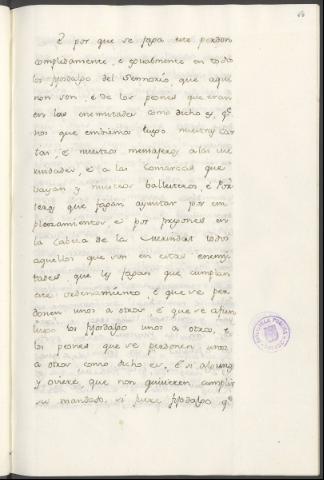 E por que se faga este perdon
complidamente, e egualmente en todos
los fijosdalgo del Sennorio, que aqui
non son, e de los peones que eran
en las enemistades como dicho es, q.e
nos que embiemos luego nuestras Car
tas, e nuestros mensageros a las me
rindades, e a las Comarcas que
vayan y nuestros ballesteros, e Por
teros que fagan ayuntar por em
plazamientos e por pregones en
la Cabeza de la Merindat todos
aquellos que son en estas enemis
tades que les fagan que cumplan
este ordenamiento, e que se per
donen unos a otros, e que se afien
luego los fijosdalgo unos a otros, e
los peones que se perdonen unos
a otros como dicho es, e si algunos
y oviere, que non quisieren complir
su mandado, si fuere fijodalgo q.e